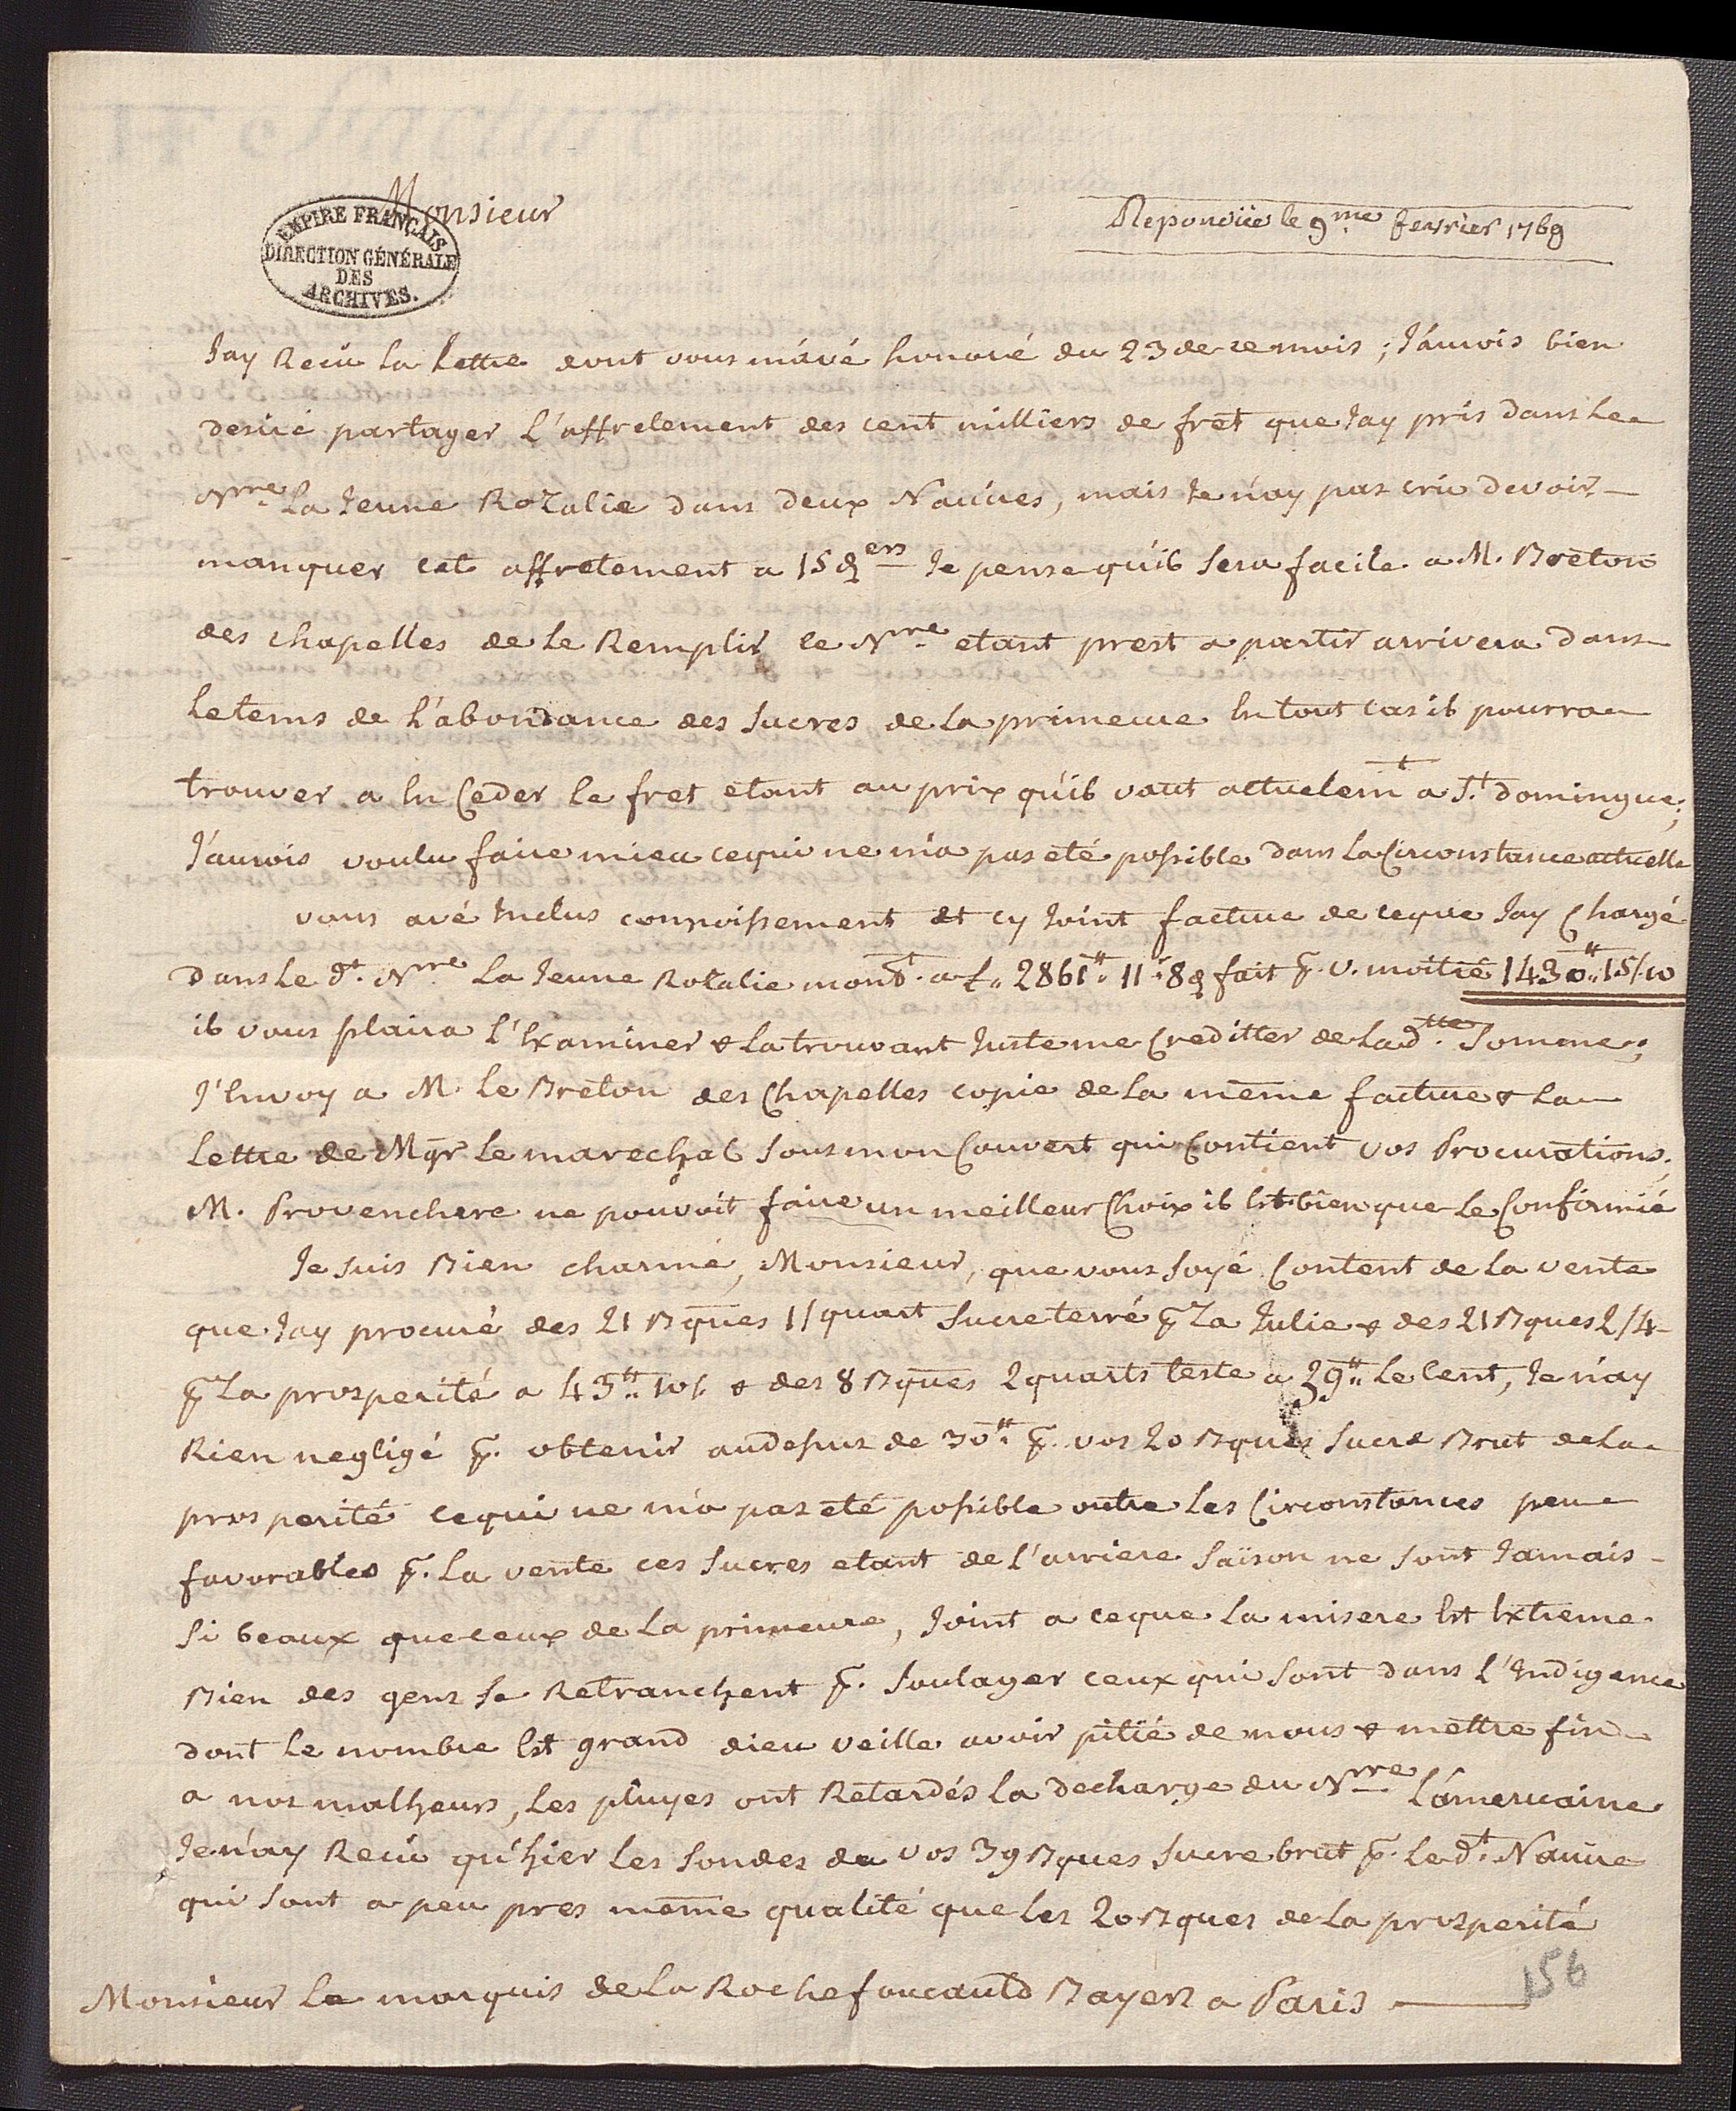 Monsieur
Repondüe le 9.me fevrier 1769
EMPIRE FRANÇAIS
DIRECTION GÉNÉRALE
DES
ARCHIVES.
Jay Reçu La Lettre dont vous m'avé honoré du 23 de ce mois ; J'aurois bien
desiré partager L'affretement des cent milliers de fret que Jay pris dans Le
N.re La Jeune Rozalie dans deux Navires, mais Je n'ay pas crû devoir
manquer cet affretement a 15 d.ers Je pense qu'il sera facile a M. Breton
des chapelles de Le Remplir ce N.re etant prest a partir arrivera dans
Le tems de L'abondance des sucres de La primeure En tout cas il pourra
trouver a En Ceder Le fret etant au prix qu'il vaut actuelem.t a S.t domingue ;
J'aurois voulu faire mieu ce qui ne m'a pas eté possible dans La Circonstance actuelle
vous avé Inclus connoissement et cy Joint facture de ce que Jay Chargé
dans Le d.t N.re La Jeune Rozalie mont.t a £. 2861.tt 11.s 8 d fait p. v. moitié 1430.tt 15/10
il vous plaira L'Examiner & La trouvant Juste me Creditter de La d.tte somme ;
J'Envoy a M. Le Breton des Chapelles copie de La meme facture & La
Lettre de Mgr Le marechal sous mon Couvert qui Contient vos Procurations,
M. Provenchere ne pouvoit faire un meilleur Choix il Est bien que Le Confirmié
Je suis Bien charmé, Monsieur, que vous soyé Content de La vente
que Jay procuré des 21 Bques 1/quart Sucre terré p. La Julie & des 21 Bques 2/4
p. La prosperité a 45.tt 10/. & des 8 Bques 2 quarts teste a 39.tt Le Cent, Je n'ay
Rien negligé p. obtenir audessus de 30.tt p. vos 20 Bques Sucre Brut de La
prosperité ce qui ne m'a pas eté possible outre Les Circonstances peu
favorables p. La vente ces Sucres etant de L'arriere saison ne sont Jamais
si beaux que ceux de La primeure, Joint a ce que La misere Est Extreme
Bien des gens se Retranchent p. soulager ceux qui sont dans L'Indigence
dont Le nombre Est grand dieu veille avoir pitié de nous & mettre fin
a nos malheurs, Les pluyes ont Retardés La decharge du N.re L'americaine
Je n'ay Reçu qu'hier Les sondes de vos 39 Bques Sucre brut p. Le d.t Navire
qui sont a peu pres meme qualité que Les 20 Bques de La prosperité
Monsieur Le marquis de La Rochefoucauld Bayers a Paris
156